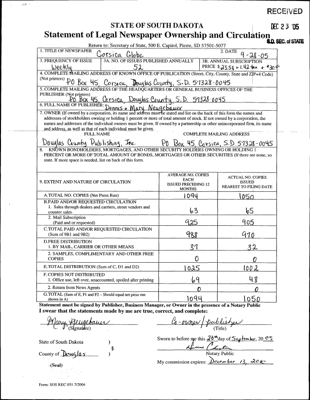 RECEIVED
DEC 23 05
S.D. SEC. of STATE
STATE OF SOUTH DAKOTA
Statement of Legal Newspaper Ownership and Circulation
Return to: Secretary of State, 500 E. Capitol, Pierre, SD 57501-5077
1. TITLE OF NEWSPAPER Corsica Globe
2. DATE 9-28-05
3. FREQUENCY OF ISSUE Weekly
3A. NO. OF ISSUES PUBLISHED ANNUALLY 52
3B. ANNUAL SUBSCRIPTION PRICE
4. COMPLETE MAILING ADDRESS OF KNOWN OFFICE OF PUBLICATION (Street, City, County, State and ZIP+4 Code)
(Not printers) PO Box 45, Corsica, Douglas County, S.D. 57328-0045
5. COMPLETE MAILING ADDRESS OF THE HEADQUARTERS OF GENERAL BUSINESS OFFICES OF THE
PUBLISHER (Not printers)
Po Box 45 Corsica, Douglas County S.D 57328 0045
6. FULL NAME OF PUBLISHER: Dennis & Mary Neugebauer
7. OWNER (If owned by a corporation, its name and address must be stated and list on the back of this form the names and
addresses of stockholders owning or holding 1 percent or more of total amount of stock. If not owned by a corporation, the
names and addresses of the individual owners must be given. If owned by a partnership or other unincorporated firm, its name
and address, as well as that of each individual must be given.
FULL NAME COMPLETE MAILING ADDRESS
Douglas County Publishing, Inc. PO Box 45, Corsica, S.D 57328-0045
8. KNOWN BONDHOLDERS, MORTGAGES, AND OTHER SECURITY HOLDERS OWNING OR HOLDING 1
PERCENT OR MORE OF TOTAL AMOUNT OF BONDS, MORTGAGES OR OTHER SECURITIES (If there are none, so
state. If more space is needed, list on back of this form.
9. EXTENT AND NATURE OF CIRCULATION
AVERAGE NO. COPIES EACH ISSUED PRECEDING 12 MONTHS
ACTUAL NO. COPIES ISSUED NEAREST TO FILING DATE
A. TOTAL NO. COPIES (Net Press Run) 1094 1050
B. PAID AND/OR REQUESTED CIRCULATION
1. Sales through dealers and carriers, street vendors and
counter sales 63 65
2. Mail Subscription
(Paid and or requested) 925 905
C. TOTAL PAID AND/OR REQUESTED CIRCULATION
(Sum of 9B1 and 9B2) 988 970
D. FREE DISTRIBUTION
1. BY MAIL, CARRIER OR OTHER MEANS 37 32
2. SAMPLES, COMPLIMENTARY AND OTHER FREE
COPIES 0 0
E. TOTAL DISTRIBUTION (Sum of C, D1 and D2) 1025 1002
F. COPIES NOT DISTRIBUTED
1. Office use, left over, unaccounted, spoiled after printing 69 48
2. Return from News Agents 0 0
G. TOTAL (Sum of E, F1 and F2 - Should equal net press run
shown in A) 1094 1050
Statement must be signed by Publisher, Business Manager, or Owner in the presence of a Notary Public
I swear that the statements made by me are true, correct, and complete:
Mary Neugebauer Co-owner/publisher
(Signature) (Title)
State of South Dakota )
§
County of Douglas )
Sworn to before me this 28th day of September, 2005
Notary Public
(Seal)
My commission expires: December 13,
Form: SOS REC 051 7/2004